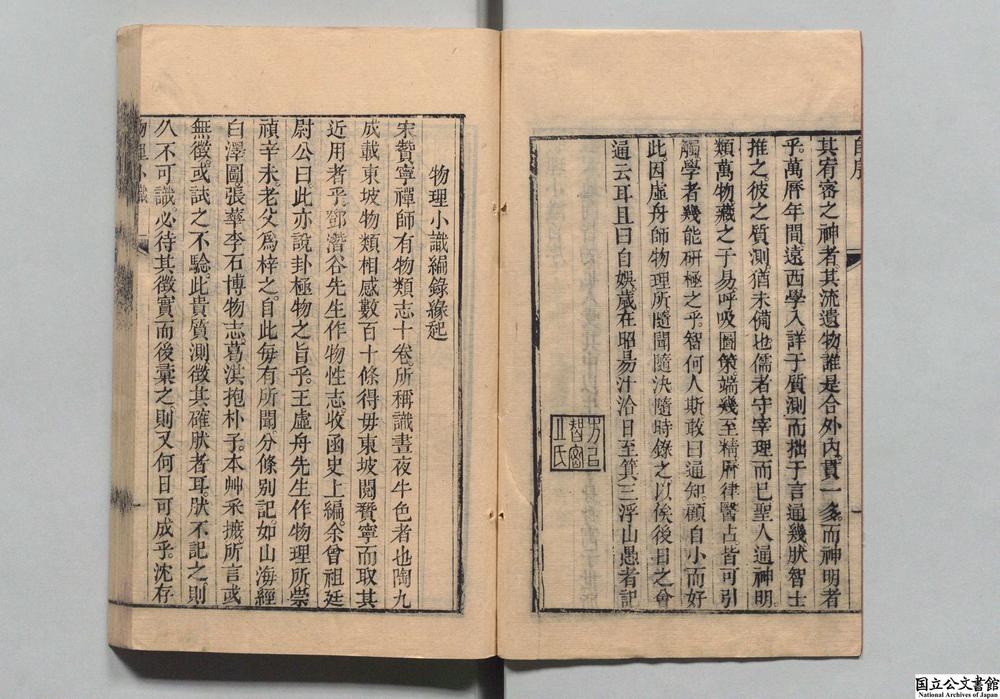 自序
其宥密之神者其流遺物誰是合外內貫一多而神明者
乎。萬曆年間遠西學入詳于質測而拙于言通幾狀智士
推之。彼之質測猶未備也。儒者守宰理而已聖人通神明
類萬物藏之于易呼吸圖策端幾至精曆律醫占皆可引
觸學者幾能研極之乎。智何人斯敢曰通知。顧自小而好
此。因虛舟師物理所隨聞隨決隨時錄之以俟後日之會
通云耳且曰自娛歲在昭昜汁洽日至箕三浮山愚者記
物理小識編錄緣起
宋贊寧禪師有物類志十卷。所稱識晝夜牛色者也陶九
成載東坡物類相感數百十條得毋東坡閱贊寧而取其
近用者乎。鄧潛谷先生作物性志。收函史上編。余曾祖廷
尉公曰。此亦說卦極物之旨乎。王虛舟先生作物理所崇
禎辛未。老父爲梓之。自此每有所聞。分條別記。如山海經
白澤圖張華李石博物志葛洪抱朴子。本艸采摭所言或
無徵。或試之不驗此貴質測徵其確狀者耳。狀不記之則
久不可識必待其徵實而後彙之。則又何日可成乎。沈存
物理小識
国立公文書館
National Archives of Japan